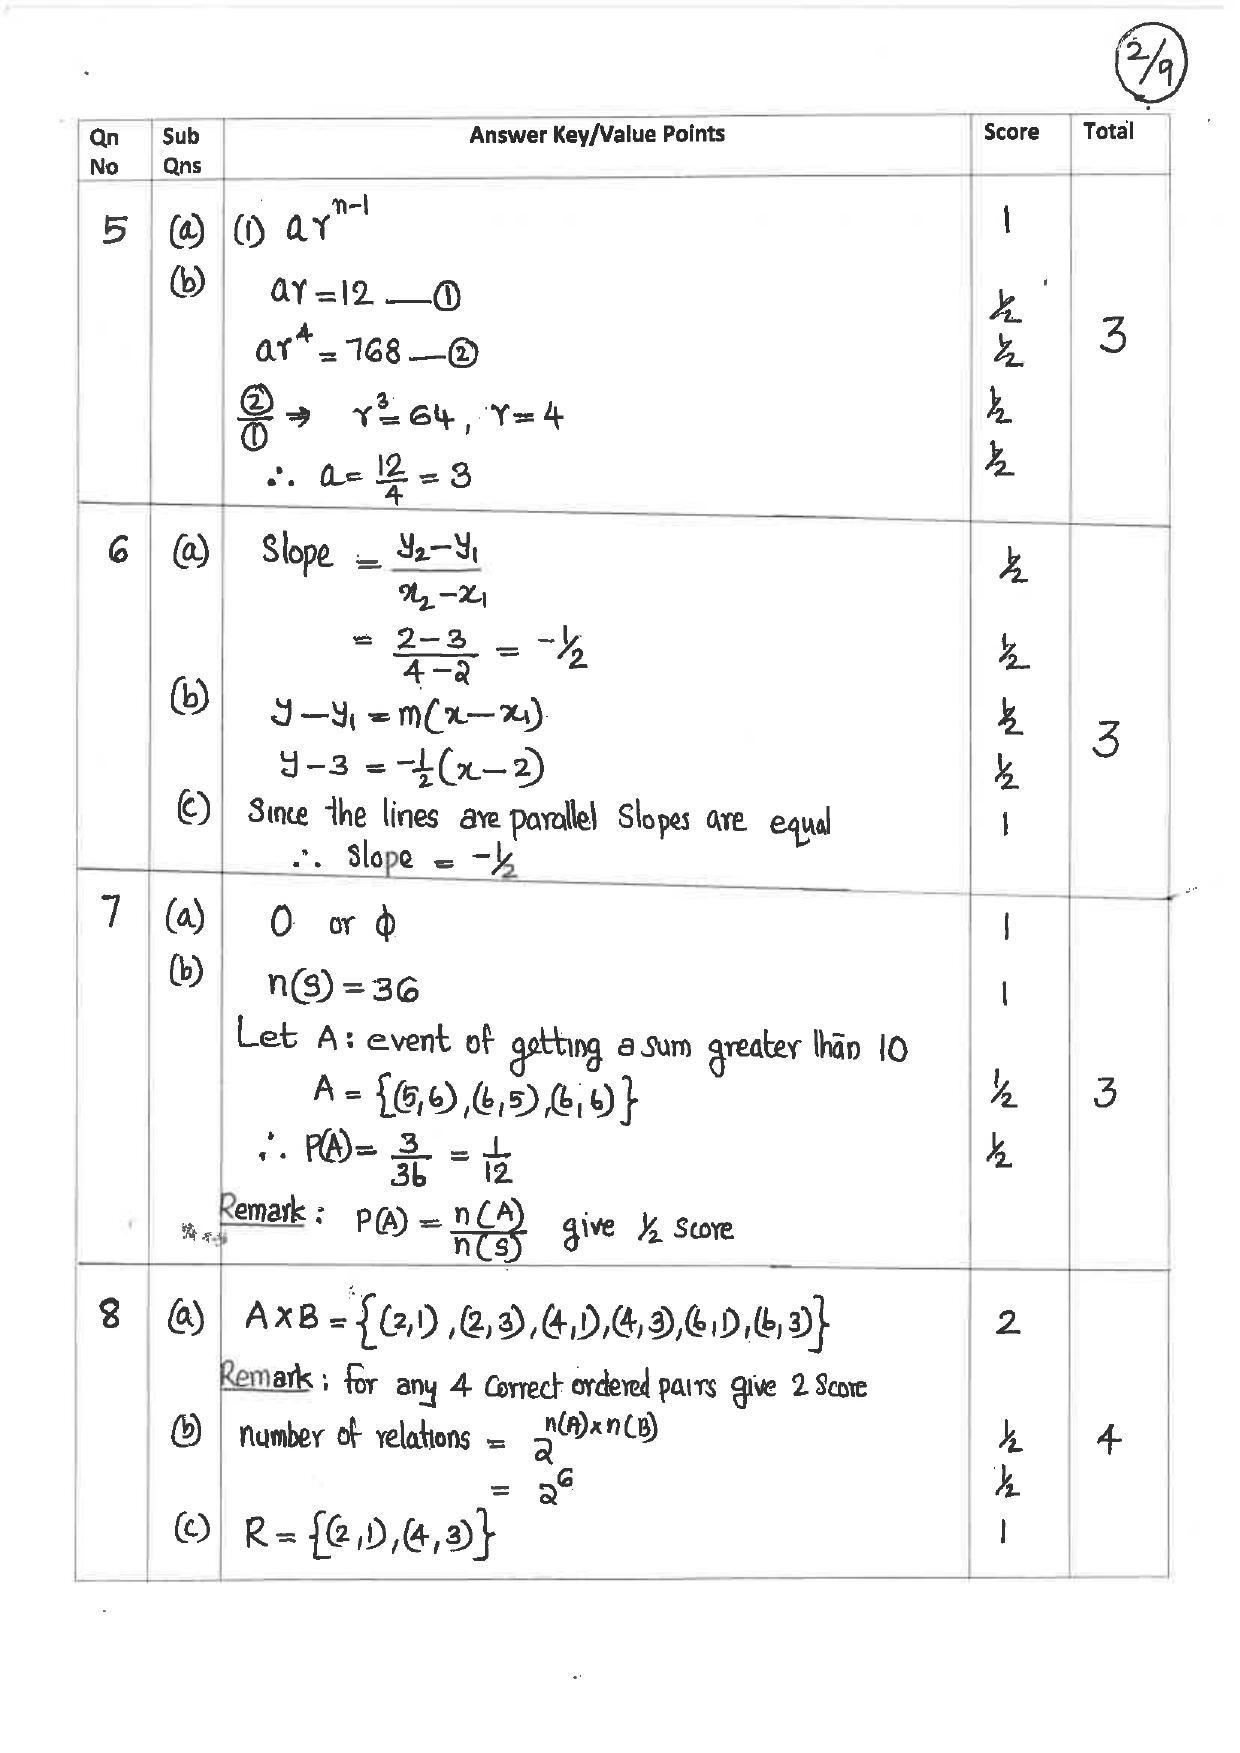 2/9
Qn No | Sub Qns | Answer Key/Value Points | Score | Total
5 | (a) | (i) ar^(n-1) | 1 | 3
(b) | ar = 12 — ① | 1/2
ar^4 = 768 — ② | 1/2
②/① → r^3 = 64, r = 4 | 1/2
∴ a = 12/4 = 3 | 1/2
6 | (a) | Slope = (y₂ - y₁)/(x₂ - x₁) | 1/2 | 3
= (2-3)/(4-2) = -1/2 | 1/2
(b) | y - y₁ = m(x - x₁) | 1/2
y - 3 = -1/2(x - 2) | 1/2
(c) | Since the lines are parallel Slopes are equal | 1
∴ Slope = -1/2
7 | (a) | 0 or ϕ | 1 | 3
(b) | n(S) = 36 | 1
Let A : event of getting a sum greater than 10
A = {(5,6),(6,5),(6,6)} | 1/2
∴ P(A) = 3/36 = 1/12 | 1/2
Remark : P(A) = n(A)/n(S) give 1/2 Score
8 | (a) | A×B = {(2,1),(2,3),(4,1),(4,3),(6,1),(6,3)} | 2 | 4
Remark : for any 4 Correct ordered pairs give 2 Score
(b) | number of relations = 2^(n(A)×n(B)) | 1/2
= 2^6 | 1/2
(c) | R = {(2,1),(4,3)} | 1